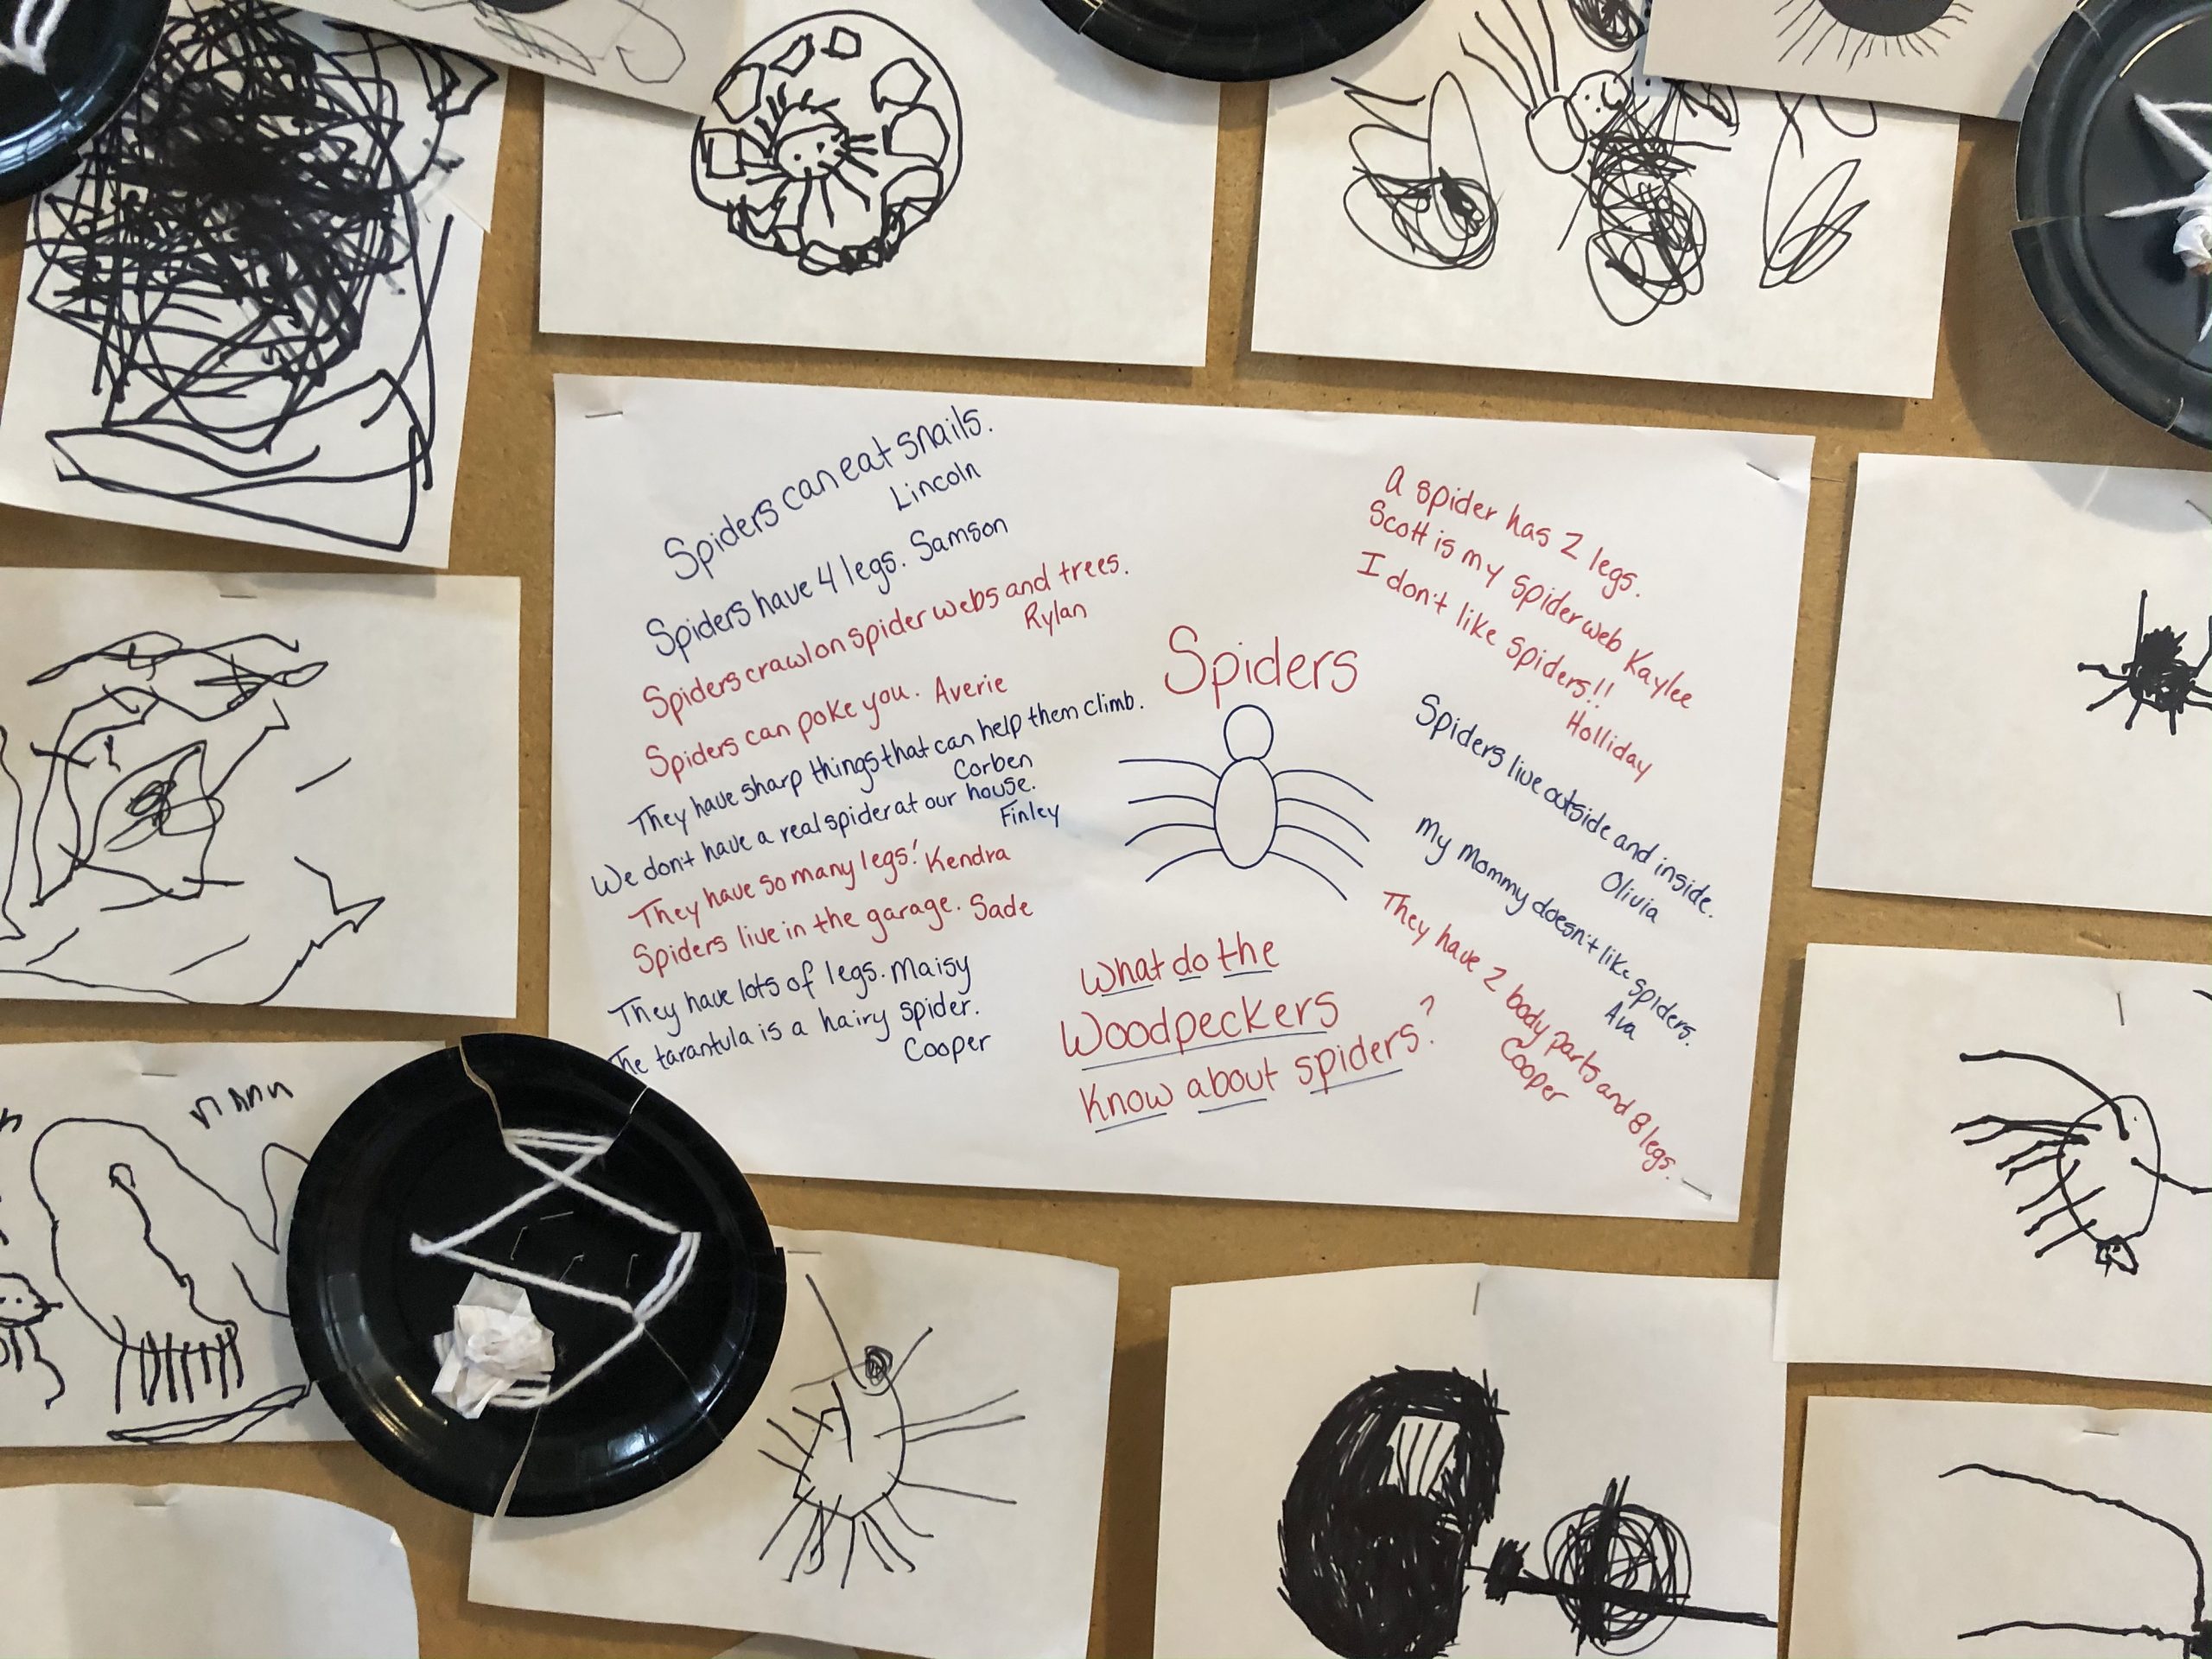 Spiders can eat snails.
Lincoln
Spiders have 4 legs. Samson
Spiders crawl on spider webs and trees.
Rylan
Spiders can poke you. Averie
They have sharp things that can help them climb.
Corben
We don't have a real spider at our house.
Finley
They have so many legs! Kendra
Spiders live in the garage. Sade
They have lots of legs. Maisy
The tarantula is a hairy spider.
Cooper
Spiders
What do the
Woodpeckers
Know about spiders?
A spider has 2 legs.
Scott is my spiderweb Kaylee
I don't like spiders!!
Holliday
Spiders live outside and inside.
Olivia
My mommy doesn't like spiders.
Ava
They have 2 body parts and 8 legs.
Cooper